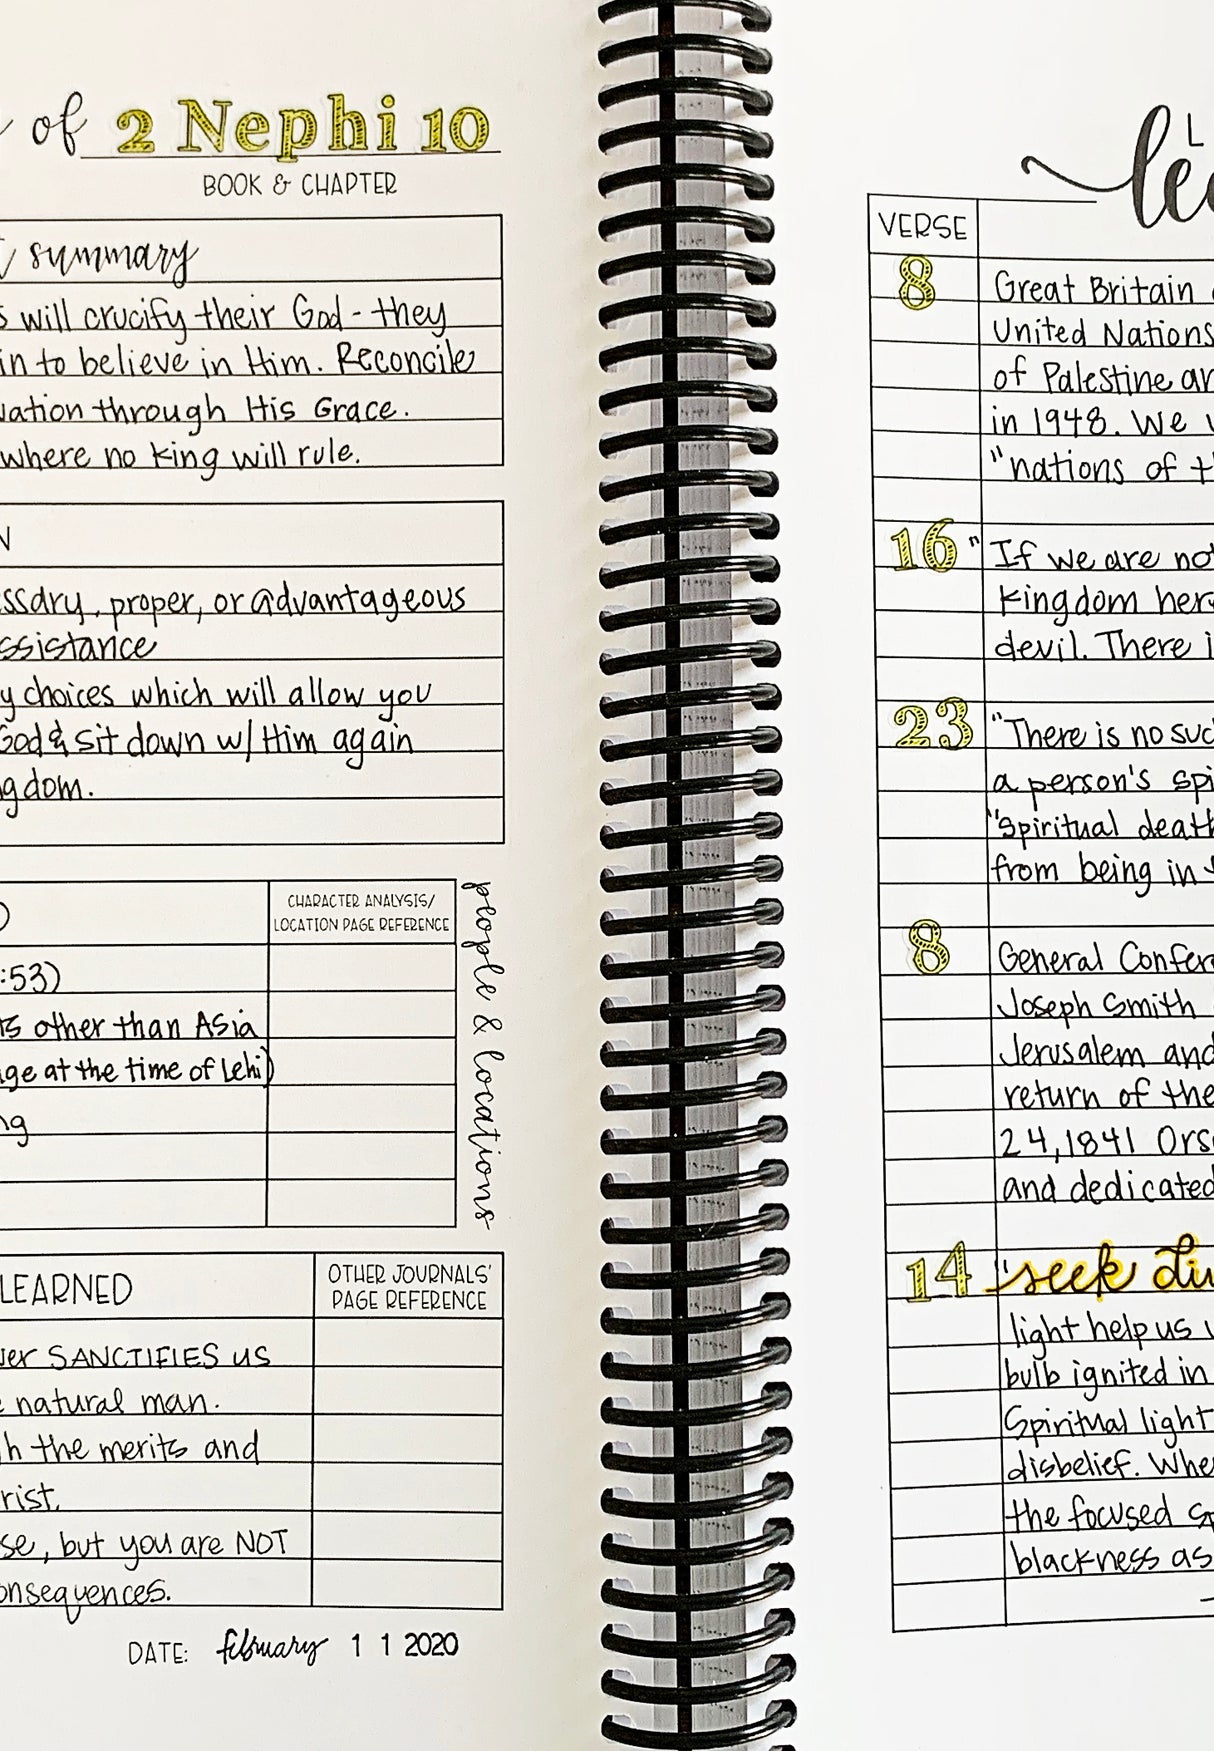 of 2 Nephi 10
BOOK & CHAPTER
summary
will crucify their God - they
in to believe in Him. Reconcile
through His Grace.
where no king will rule.
proper, or advantageous
choices which will allow you
God & sit down w/ Him again
CHARACTER ANALYSIS/
LOCATION PAGE REFERENCE
people & locations
:53)
other than Asia
at the time of Lehi)
LEARNED
OTHER JOURNALS'
PAGE REFERENCE
SANCTIFIES us
natural man.
the merits and
, but you are NOT
DATE: february 1 1 2020
VERSE
8
Great Britain
United Nations
of Palestine
in 1948. We
"nations of
16
"If we are
kingdom
devil. There
23
"There is no
a person's
"Spiritual
from being in
8
General
Joseph Smith
Jerusalem and
return of the
24, 1841
and dedicated
14
"seek
light help us
bulb ignited in
Spiritual light
disbelief.
the focused
blackness as